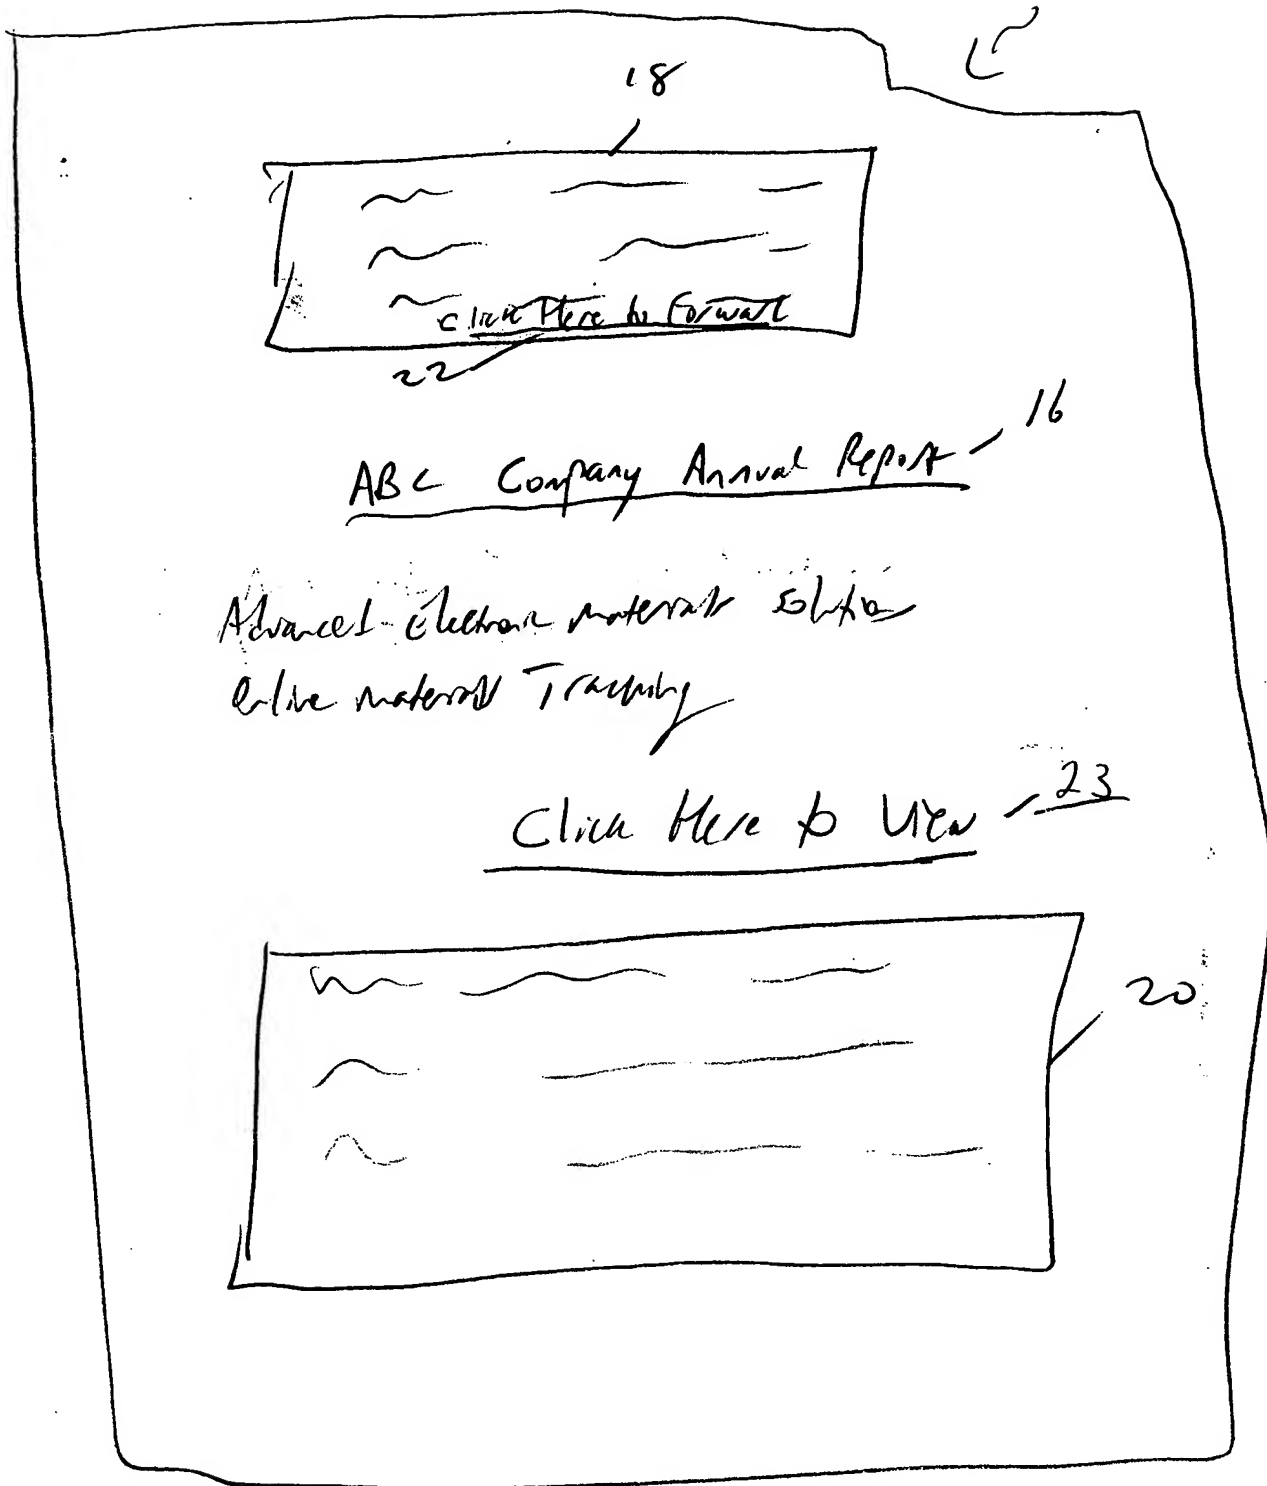 18
Click Here to Forward
22
ABC Company Annual Report 16
Advanced electronic materials solution
online materials Tracking
Click Here to View 23
20